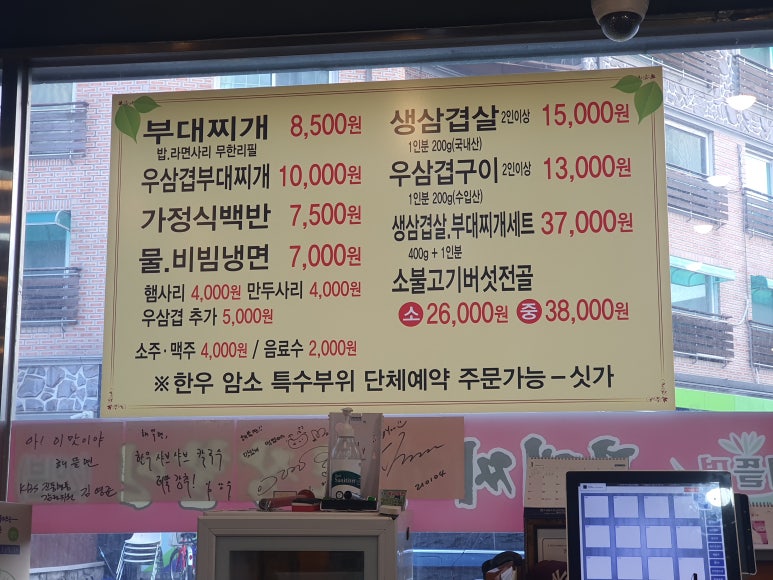 부대찌개 8,500원
밥.라면사리 무한리필
우삼겹부대찌개 10,000원
가정식백반 7,500원
물.비빔냉면 7,000원
햄사리 4,000원 만두사리 4,000원
우삼겹 추가 5,000원
소주·맥주 4,000원 / 음료수 2,000원
생삼겹살 2인이상 15,000원
1인분 200g(국내산)
우삼겹구이 2인이상 13,000원
1인분 200g(수입산)
생삼겹살.부대찌개세트 37,000원
400g + 1인분
소불고기버섯전골
소 26,000원 중 38,000원
※한우 암소 특수부위 단체예약 주문가능-싯가
아! 이맛이야
해뜰면
KBS
김영근
해뜰면
한우 샤브샤브 칼국수
Sanitizer